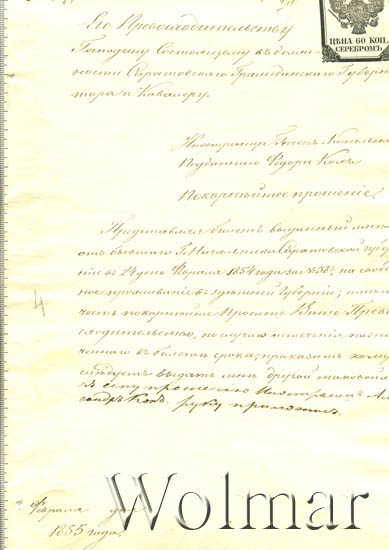 Его Превосходительству
Господину Состоящему въ долж-
ности Саратовскаго Гражданскаго Губерна-
тора и Кавалеру.
ЦѢНА 60 КОП.
СЕРЕБРОМЪ.
Иностранца
Подданнаго Федора Кохъ
Покорнѣйшее прошеніе!
Представляя билетъ выданный мнѣ
отъ бывшаго Г. Начальника Саратовской губер
ніи въ 24 день Февраля 1854 года за № 38? на свобод
ное проживаніе въ здѣшней Губерніи; имѣю
честь покорнѣйше просить Ваше Прево
сходительство, по случаю истеченія назна
ченнаго въ билетѣ срока; приказать кому
слѣдуетъ выдать мнѣ другой таковой
къ сему прошенію Иностранецъ Алек
сандръ Кохъ руку приложилъ.
4
Февраля дня
1855 года.
Wolmar